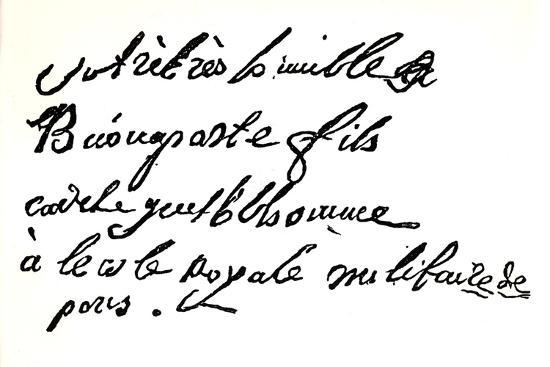 Votre très humble &
Buonaparte fils
cadet gentilhomme
à lecole royale militaire de
paris .